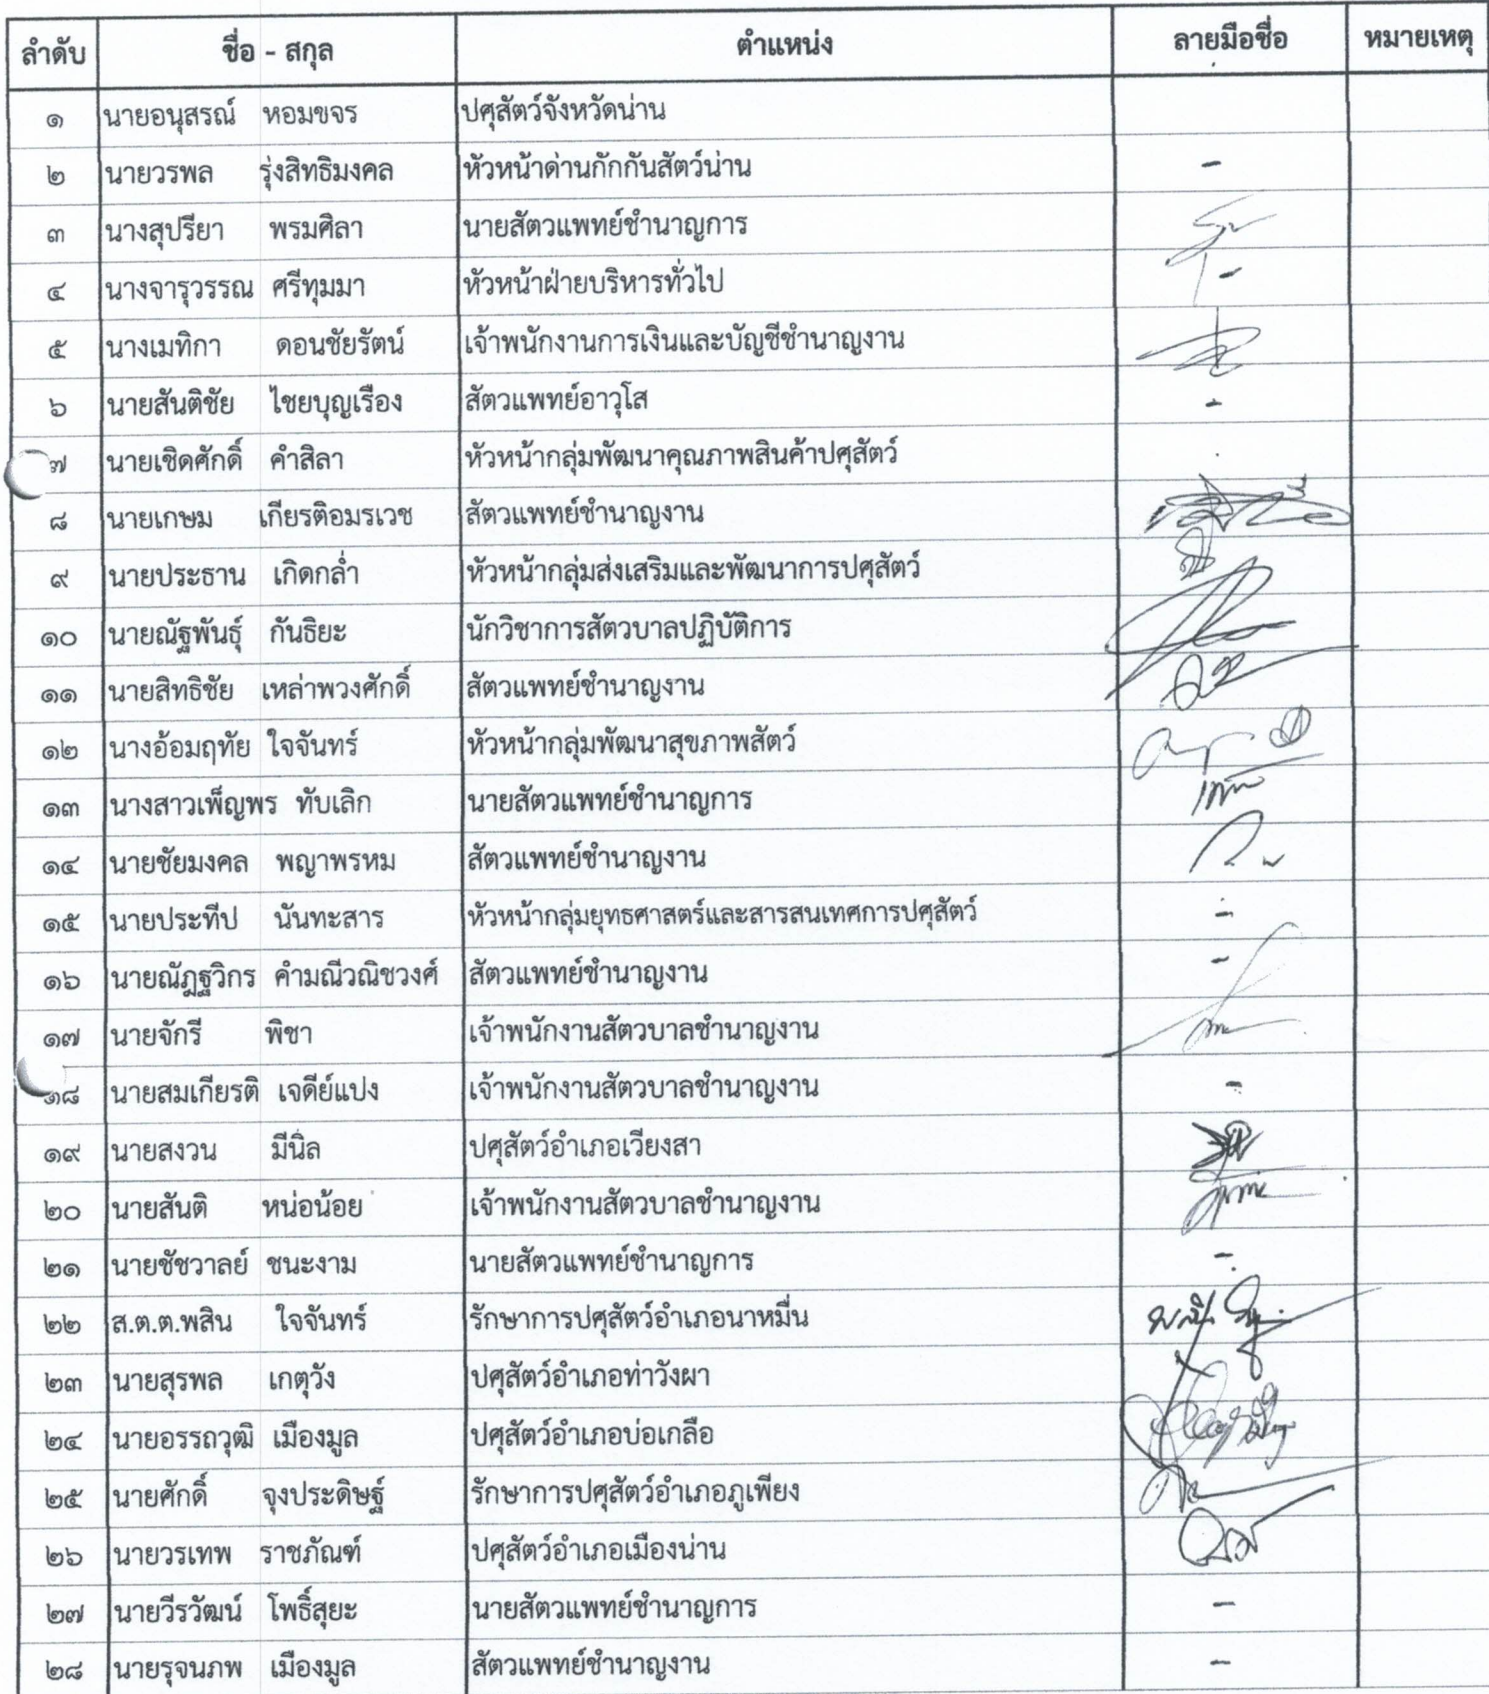 ลำดับ ชื่อ - สกุล ตำแหน่ง ลายมือชื่อ หมายเหตุ
๑ นายอนุสรณ์ หอมขจร ปศุสัตว์จังหวัดน่าน
๒ นายวรพล รุ่งสิทธิมงคล หัวหน้าด่านกักกันสัตว์น่าน -
๓ นางสุปรียา พรมศิลา นายสัตวแพทย์ชำนาญการ
๔ นางจารุวรรณ ศรีทุมมา หัวหน้าฝ่ายบริหารทั่วไป -
๕ นางเมทิกา ดอนชัยรัตน์ เจ้าพนักงานการเงินและบัญชีชำนาญงาน
๖ นายสันติชัย ไชยบุญเรือง สัตวแพทย์อาวุโส -
๗ นายเชิดศักดิ์ คำสิลา หัวหน้ากลุ่มพัฒนาคุณภาพสินค้าปศุสัตว์
๘ นายเกษม เกียรติอมรเวช สัตวแพทย์ชำนาญงาน
๙ นายประธาน เกิดกล่ำ หัวหน้ากลุ่มส่งเสริมและพัฒนาการปศุสัตว์
๑๐ นายณัฐพันธุ์ กันธิยะ นักวิชาการสัตวบาลปฏิบัติการ
๑๑ นายสิทธิชัย เหล่าพวงศักดิ์ สัตวแพทย์ชำนาญงาน
๑๒ นางอ้อมฤทัย ใจจันทร์ หัวหน้ากลุ่มพัฒนาสุขภาพสัตว์
๑๓ นางสาวเพ็ญพร ทับเลิก นายสัตวแพทย์ชำนาญการ
๑๔ นายชัยมงคล พญาพรหม สัตวแพทย์ชำนาญงาน
๑๕ นายประทีป นันทะสาร หัวหน้ากลุ่มยุทธศาสตร์และสารสนเทศการปศุสัตว์ -
๑๖ นายณัฎฐวิกร คำมณีวณิชวงศ์ สัตวแพทย์ชำนาญงาน -
๑๗ นายจักรี พิชา เจ้าพนักงานสัตวบาลชำนาญงาน
๑๘ นายสมเกียรติ เจดีย์แปง เจ้าพนักงานสัตวบาลชำนาญงาน -
๑๙ นายสงวน มีนิล ปศุสัตว์อำเภอเวียงสา
๒๐ นายสันติ หน่อน้อย เจ้าพนักงานสัตวบาลชำนาญงาน
๒๑ นายชัชวาลย์ ชนะงาม นายสัตวแพทย์ชำนาญการ -
๒๒ ส.ต.ต.พสิน ใจจันทร์ รักษาการปศุสัตว์อำเภอนาหมื่น
๒๓ นายสุรพล เกตุวัง ปศุสัตว์อำเภอท่าวังผา
๒๔ นายอรรถวุฒิ เมืองมูล ปศุสัตว์อำเภอบ่อเกลือ
๒๕ นายศักดิ์ จุงประดิษฐ์ รักษาการปศุสัตว์อำเภอภูเพียง
๒๖ นายวรเทพ ราชภัณฑ์ ปศุสัตว์อำเภอเมืองน่าน
๒๗ นายวีรวัฒน์ โพธิ์สุยะ นายสัตวแพทย์ชำนาญการ -
๒๘ นายรุจนภพ เมืองมูล สัตวแพทย์ชำนาญงาน -